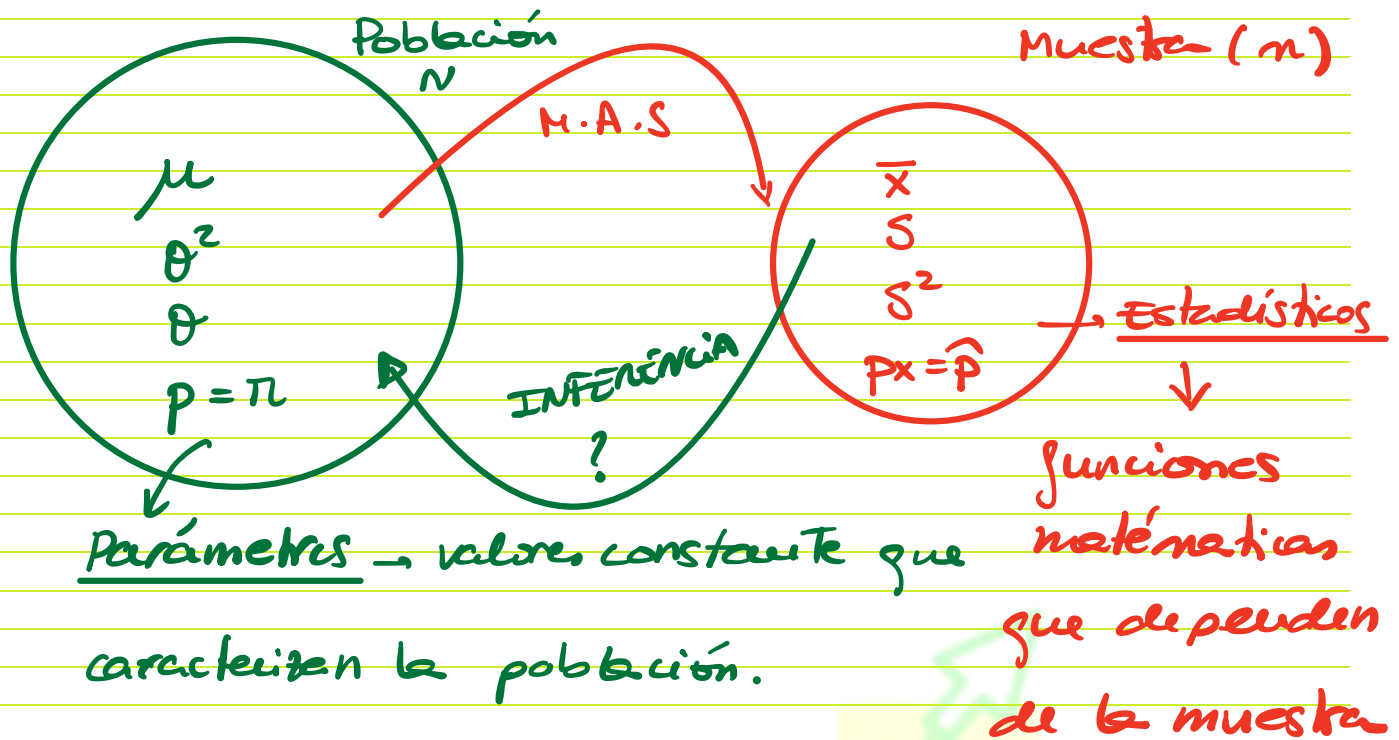 Población
N
Muestra (n)
M.A.S
μ
θ²
θ
p = π
x̄
S
S²
px = p̂
→ Estadísticos
↓
INFERENCIA
?
funciones
matématicas
que dependen
de la muestra
Parámetros → valores constante que
caracterizen la población.